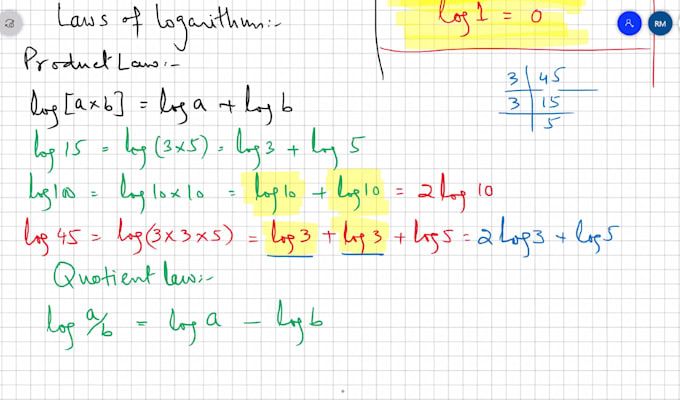 Laws of logarithm:-
log 1 = 0
RM
Product Law:-
log [a×b] = log a + log b
3 | 45
3 | 15
5
log 15 = log (3×5) = log 3 + log 5
log 100 = log 10×10 = log 10 + log 10 = 2 log 10
log 45 = log (3×3×5) = log 3 + log 3 + log 5 = 2 log 3 + log 5
Quotient law:-
log a/b = log a - log b